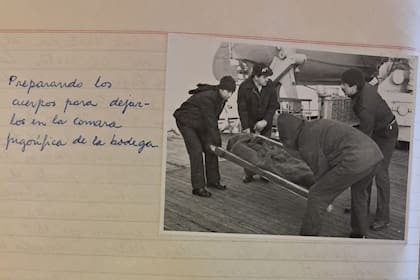 Preparando los
cuerpos para dejar-
los en la camara
frigorífica de la bodega